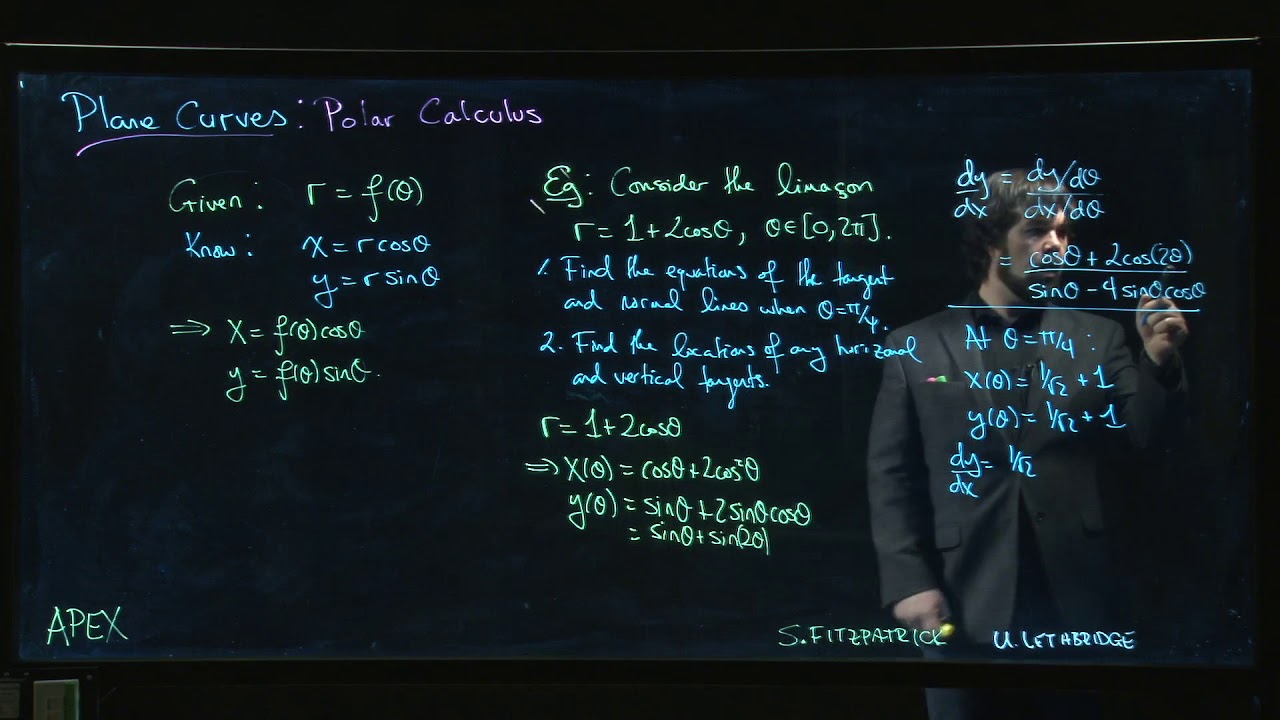 Plane Curves: Polar Calculus
Given: r = f(θ)
Know: x = r cosθ
y = r sinθ
⇒ x = f(θ)cosθ
y = f(θ)sinθ.
Eg: Consider the limaçon
r = 1+2cosθ, θ∈[0,2π].
1. Find the equations of the tangent
and normal lines when θ=π/4.
2. Find the locations of any horizonal
and vertical tangents.
r = 1+2cosθ
⇒ x(θ) = cosθ+2cos²θ
y(θ) = sinθ+2sinθcosθ
= sinθ+sin(2θ)
dy/dx = (dy/dθ)/(dx/dθ)
= (cosθ + 2cos(2θ))/(sinθ - 4sinθcosθ)
At θ=π/4 :
x(θ) = 1/√2 + 1
y(θ) = 1/√2 + 1
dy/dx = 1/√2
APEX
S. FITZPATRICK
U. LETHBRIDGE